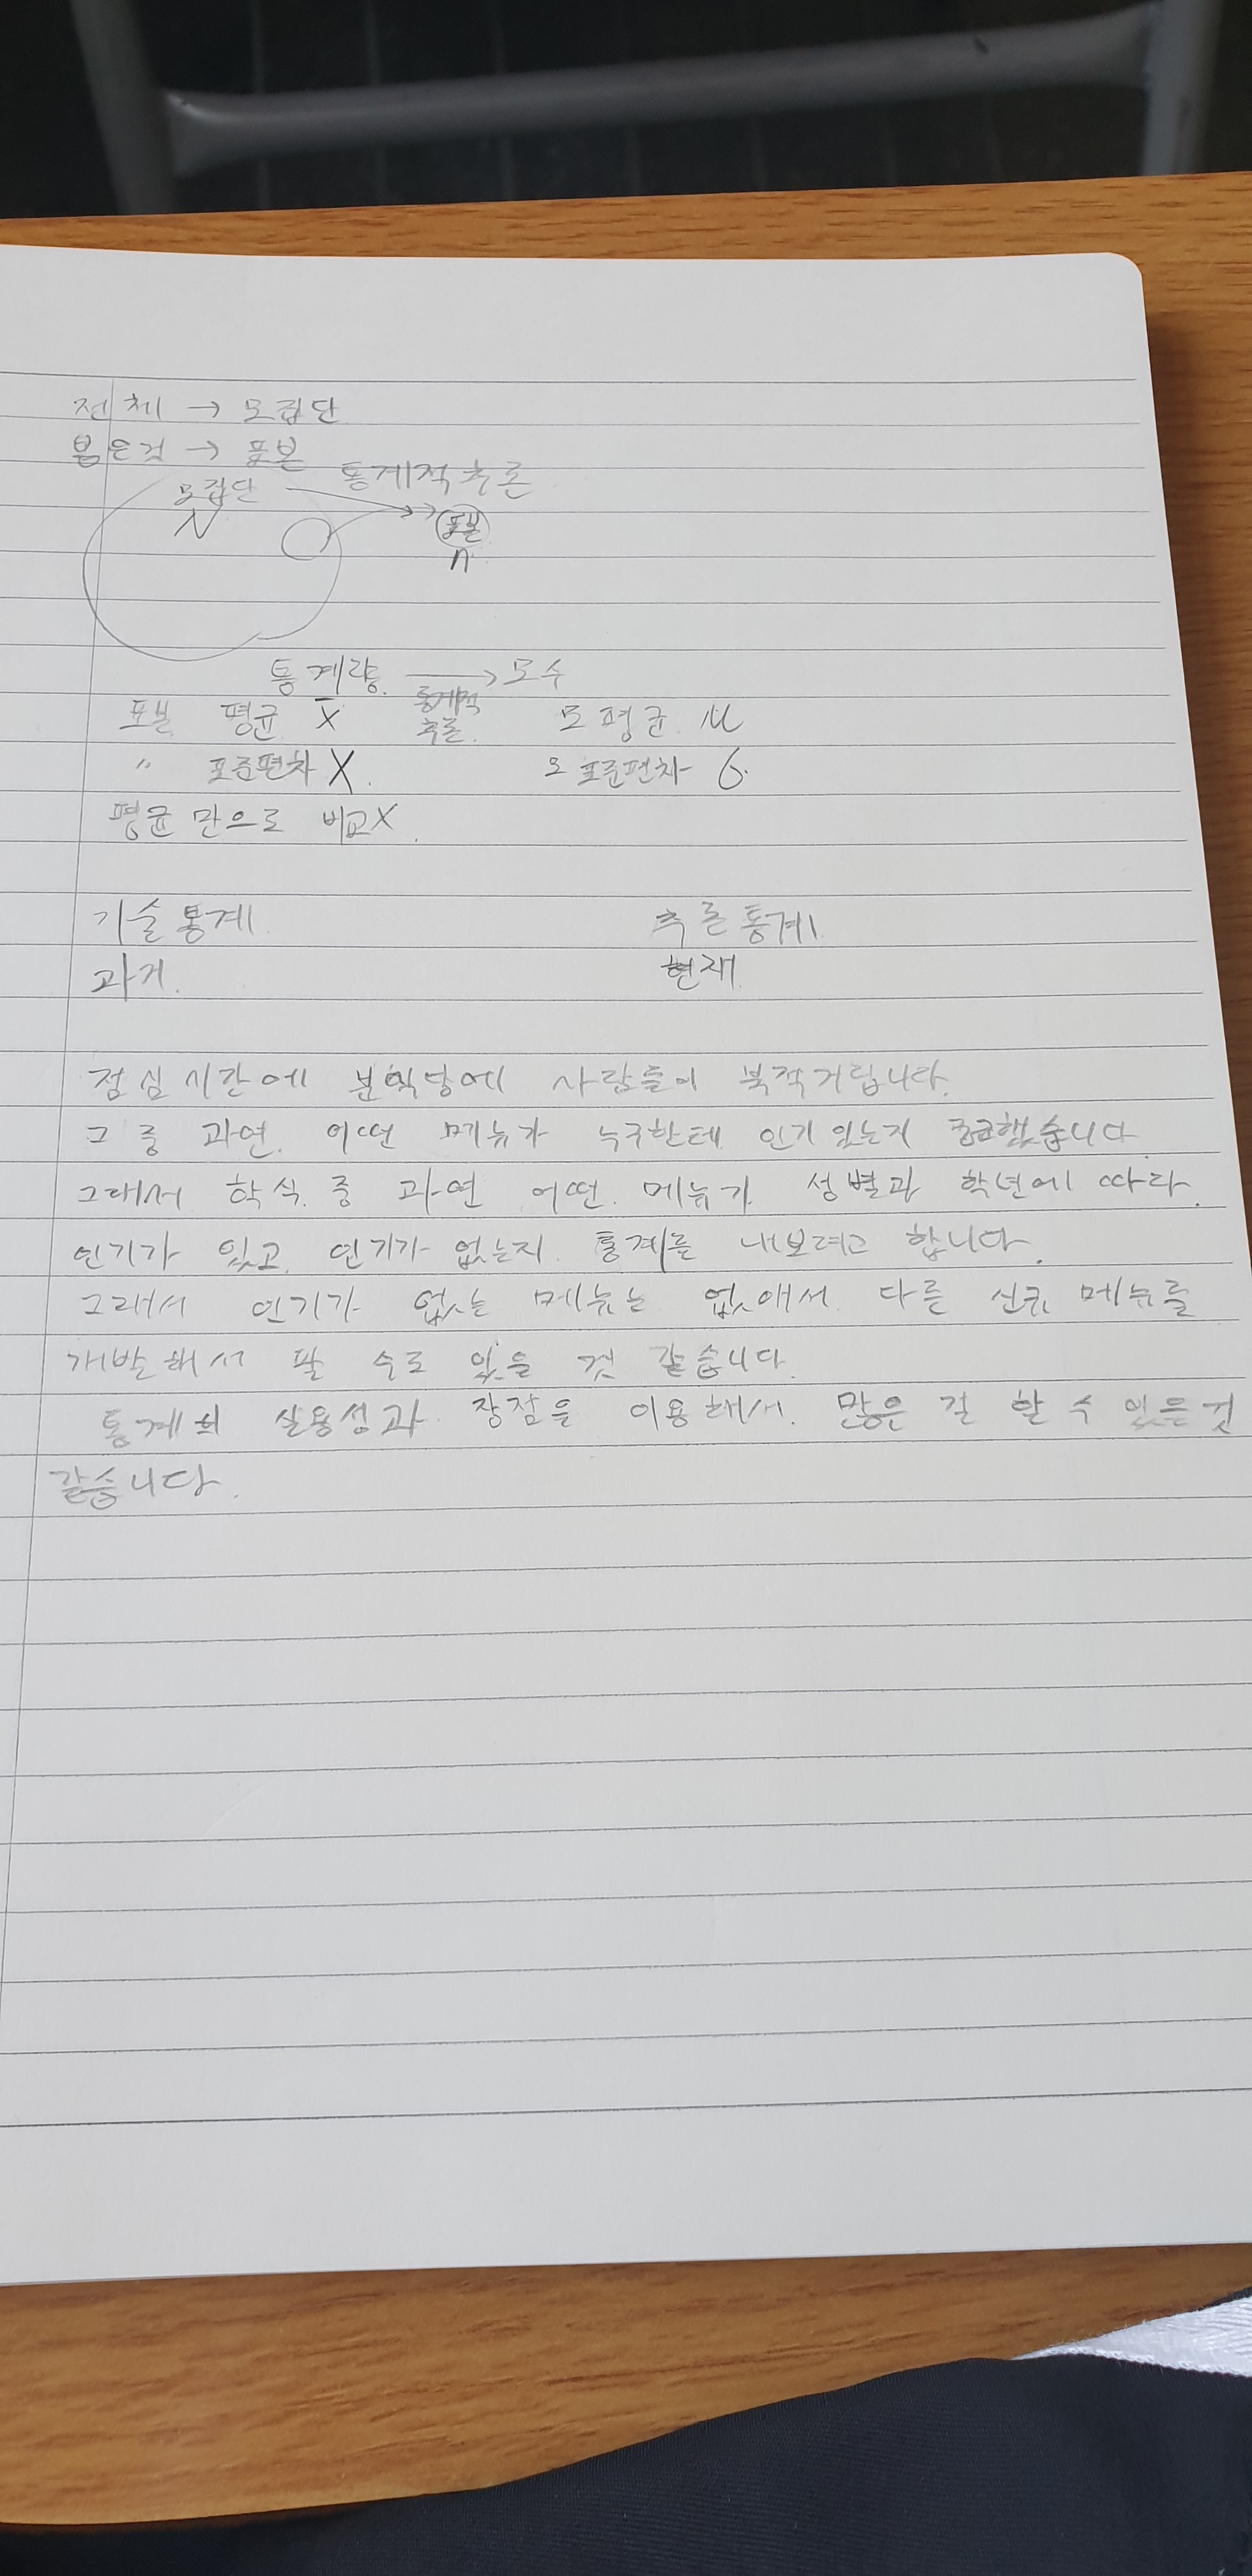 전체 → 모집단
뽑은것 → 표본
모집단 통계적추론
N 표본
n
통계량 → 모수
통계적
추론
표본 평균 x̄ 모평균 μ
〃 표준편차 X 모표준편차 6
평균만으로 비교X
기술통계 추론통계
과거 현재
점심시간에 분식당에 사람들이 북적거립니다.
그 중 과연 어떤 메뉴가 누구한테 인기 있는지 궁금했습니다
그래서 학식 중 과연 어떤 메뉴가 성별과 학년에 따라
인기가 있고 인기가 없는지 통계를 내보려고 합니다.
그래서 인기가 없는 메뉴는 없애서 다른 신규 메뉴를
개발해서 팔 수도 있을 것 같습니다.
통계의 실용성과 장점을 이용해서 많은 걸 할 수 있을 것
같습니다.